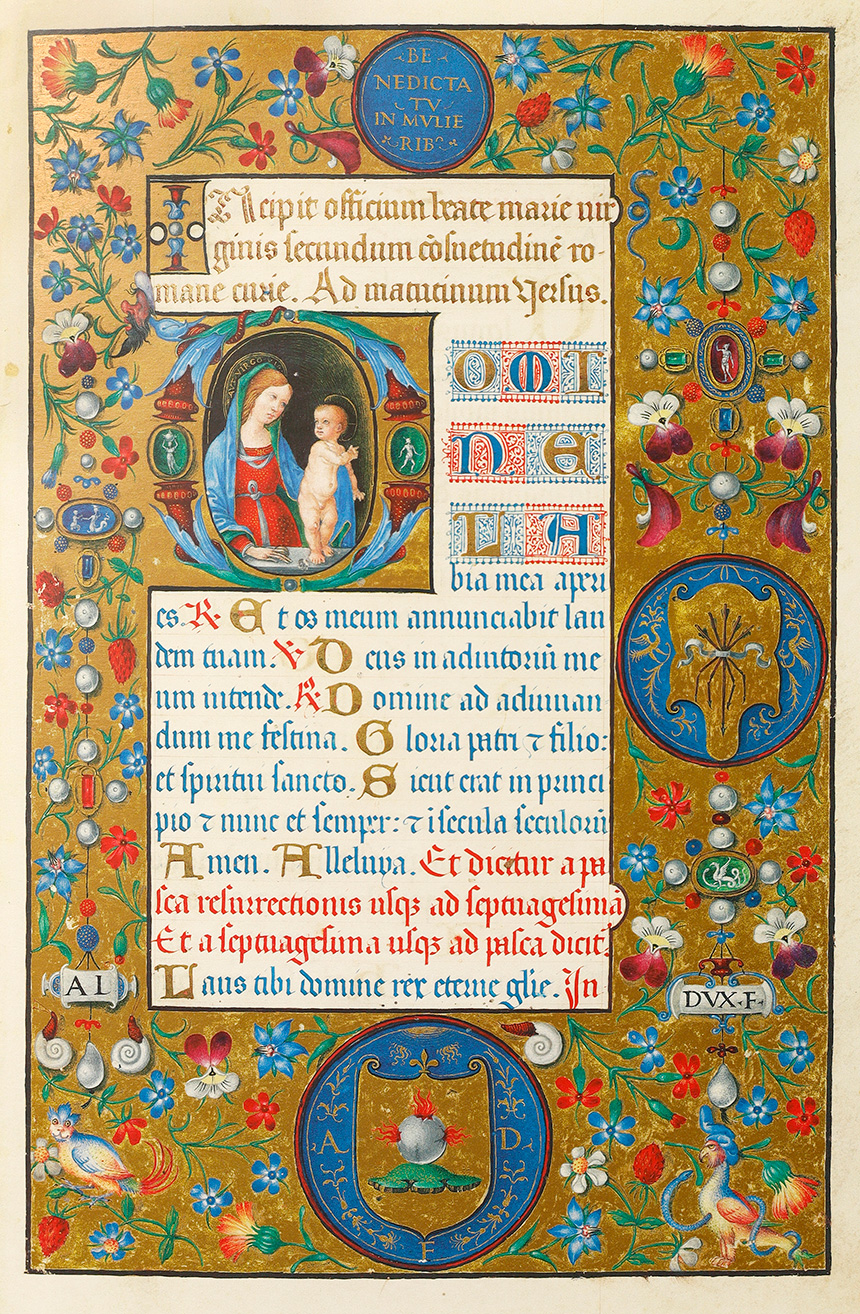 BE
NEDICTA
TV
IN MVLIE
RIBꝰ
INcipit officium beate marie uir
ginis secundum cōsuetudinē ro-
mane curie. Ad matutinum Versus.
DOMI
NE
LA
bia mea aperi
es. R. Et os meum annunciabit lau
dem tuam. V Deus in adiutoriū me
um intende. R Domine ad adiuuan
dum me festina. Gloria patri ⁊ filio:
et spiritui sancto. Sicut erat in princi
pio ⁊ nunc et semper: ⁊ ī secula seculorū
Amen. Alleluya. Et dicitur a pa
sca resurrectionis usqꝫ ad septuagesimā
Et a septuagesima usqꝫ ad pasca dicit̃.
Laus tibi domine rex eterne glīe. In
AL
DVX·F·
A
D
F